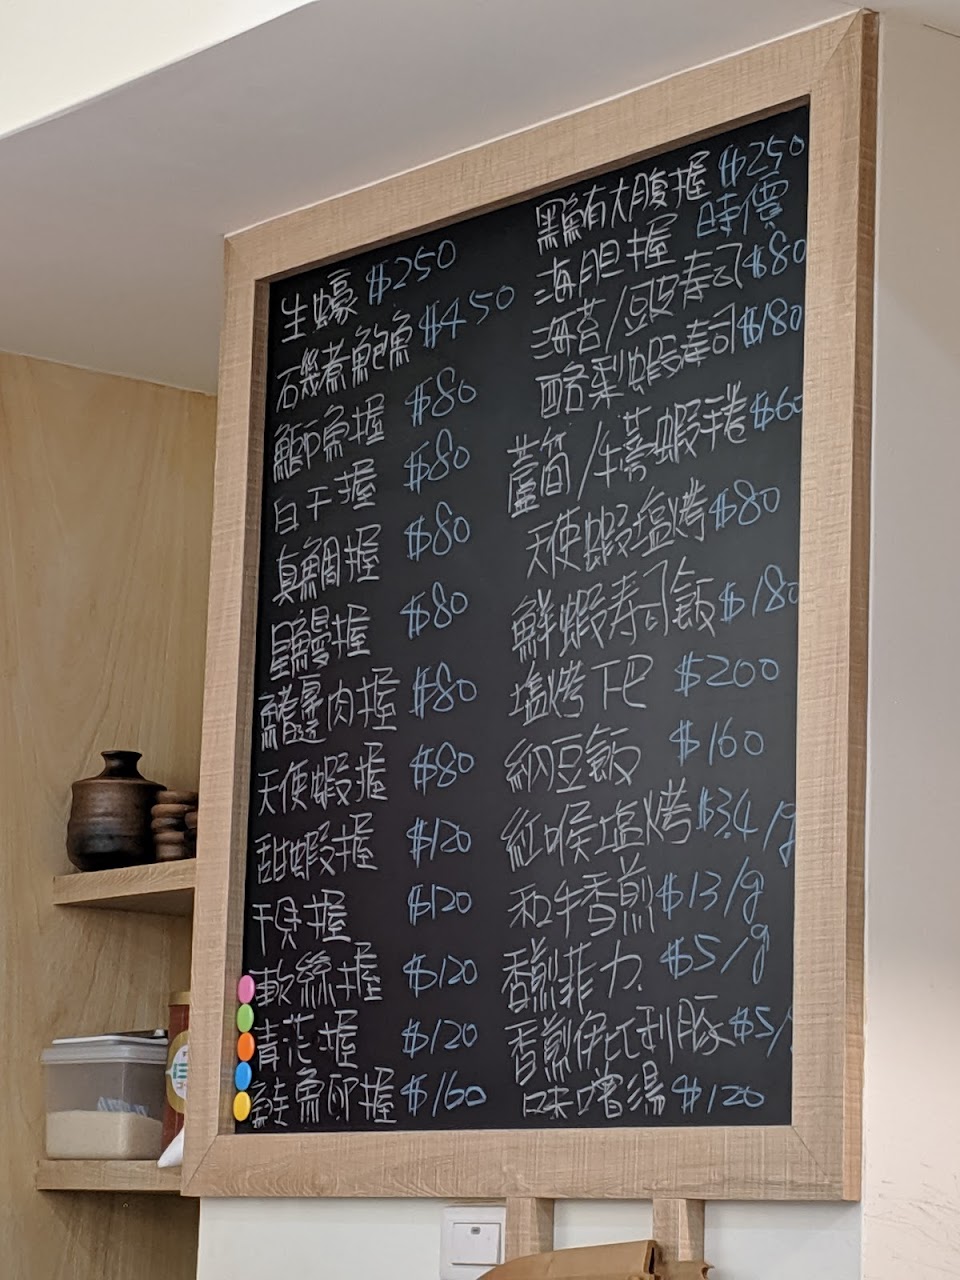 生蠔 $250
磯煮鮑魚 $450
鰤魚握 $80
白干握 $80
真鯛握 $80
星鰻握 $80
鰭邊肉握 $80
天使蝦握 $80
甜蝦握 $120
干貝握 $120
軟絲握 $120
青花握 $120
鮭魚卵握 $160
黑鮪大腹握 $250
海胆握 時價
海苔/豆皮壽司 $80
酪梨蝦壽司 $180
蘆筍/牛蒡蝦手卷 $60
天使蝦塩烤 $80
鮮蝦壽司飯 $180
塩烤下巴 $200
納豆飯 $160
紅喉塩烤 $3.4/g
和牛香煎 $13/g
香煎菲力 $5/g
香煎伊比利豚 $5/
味噌湯 $120